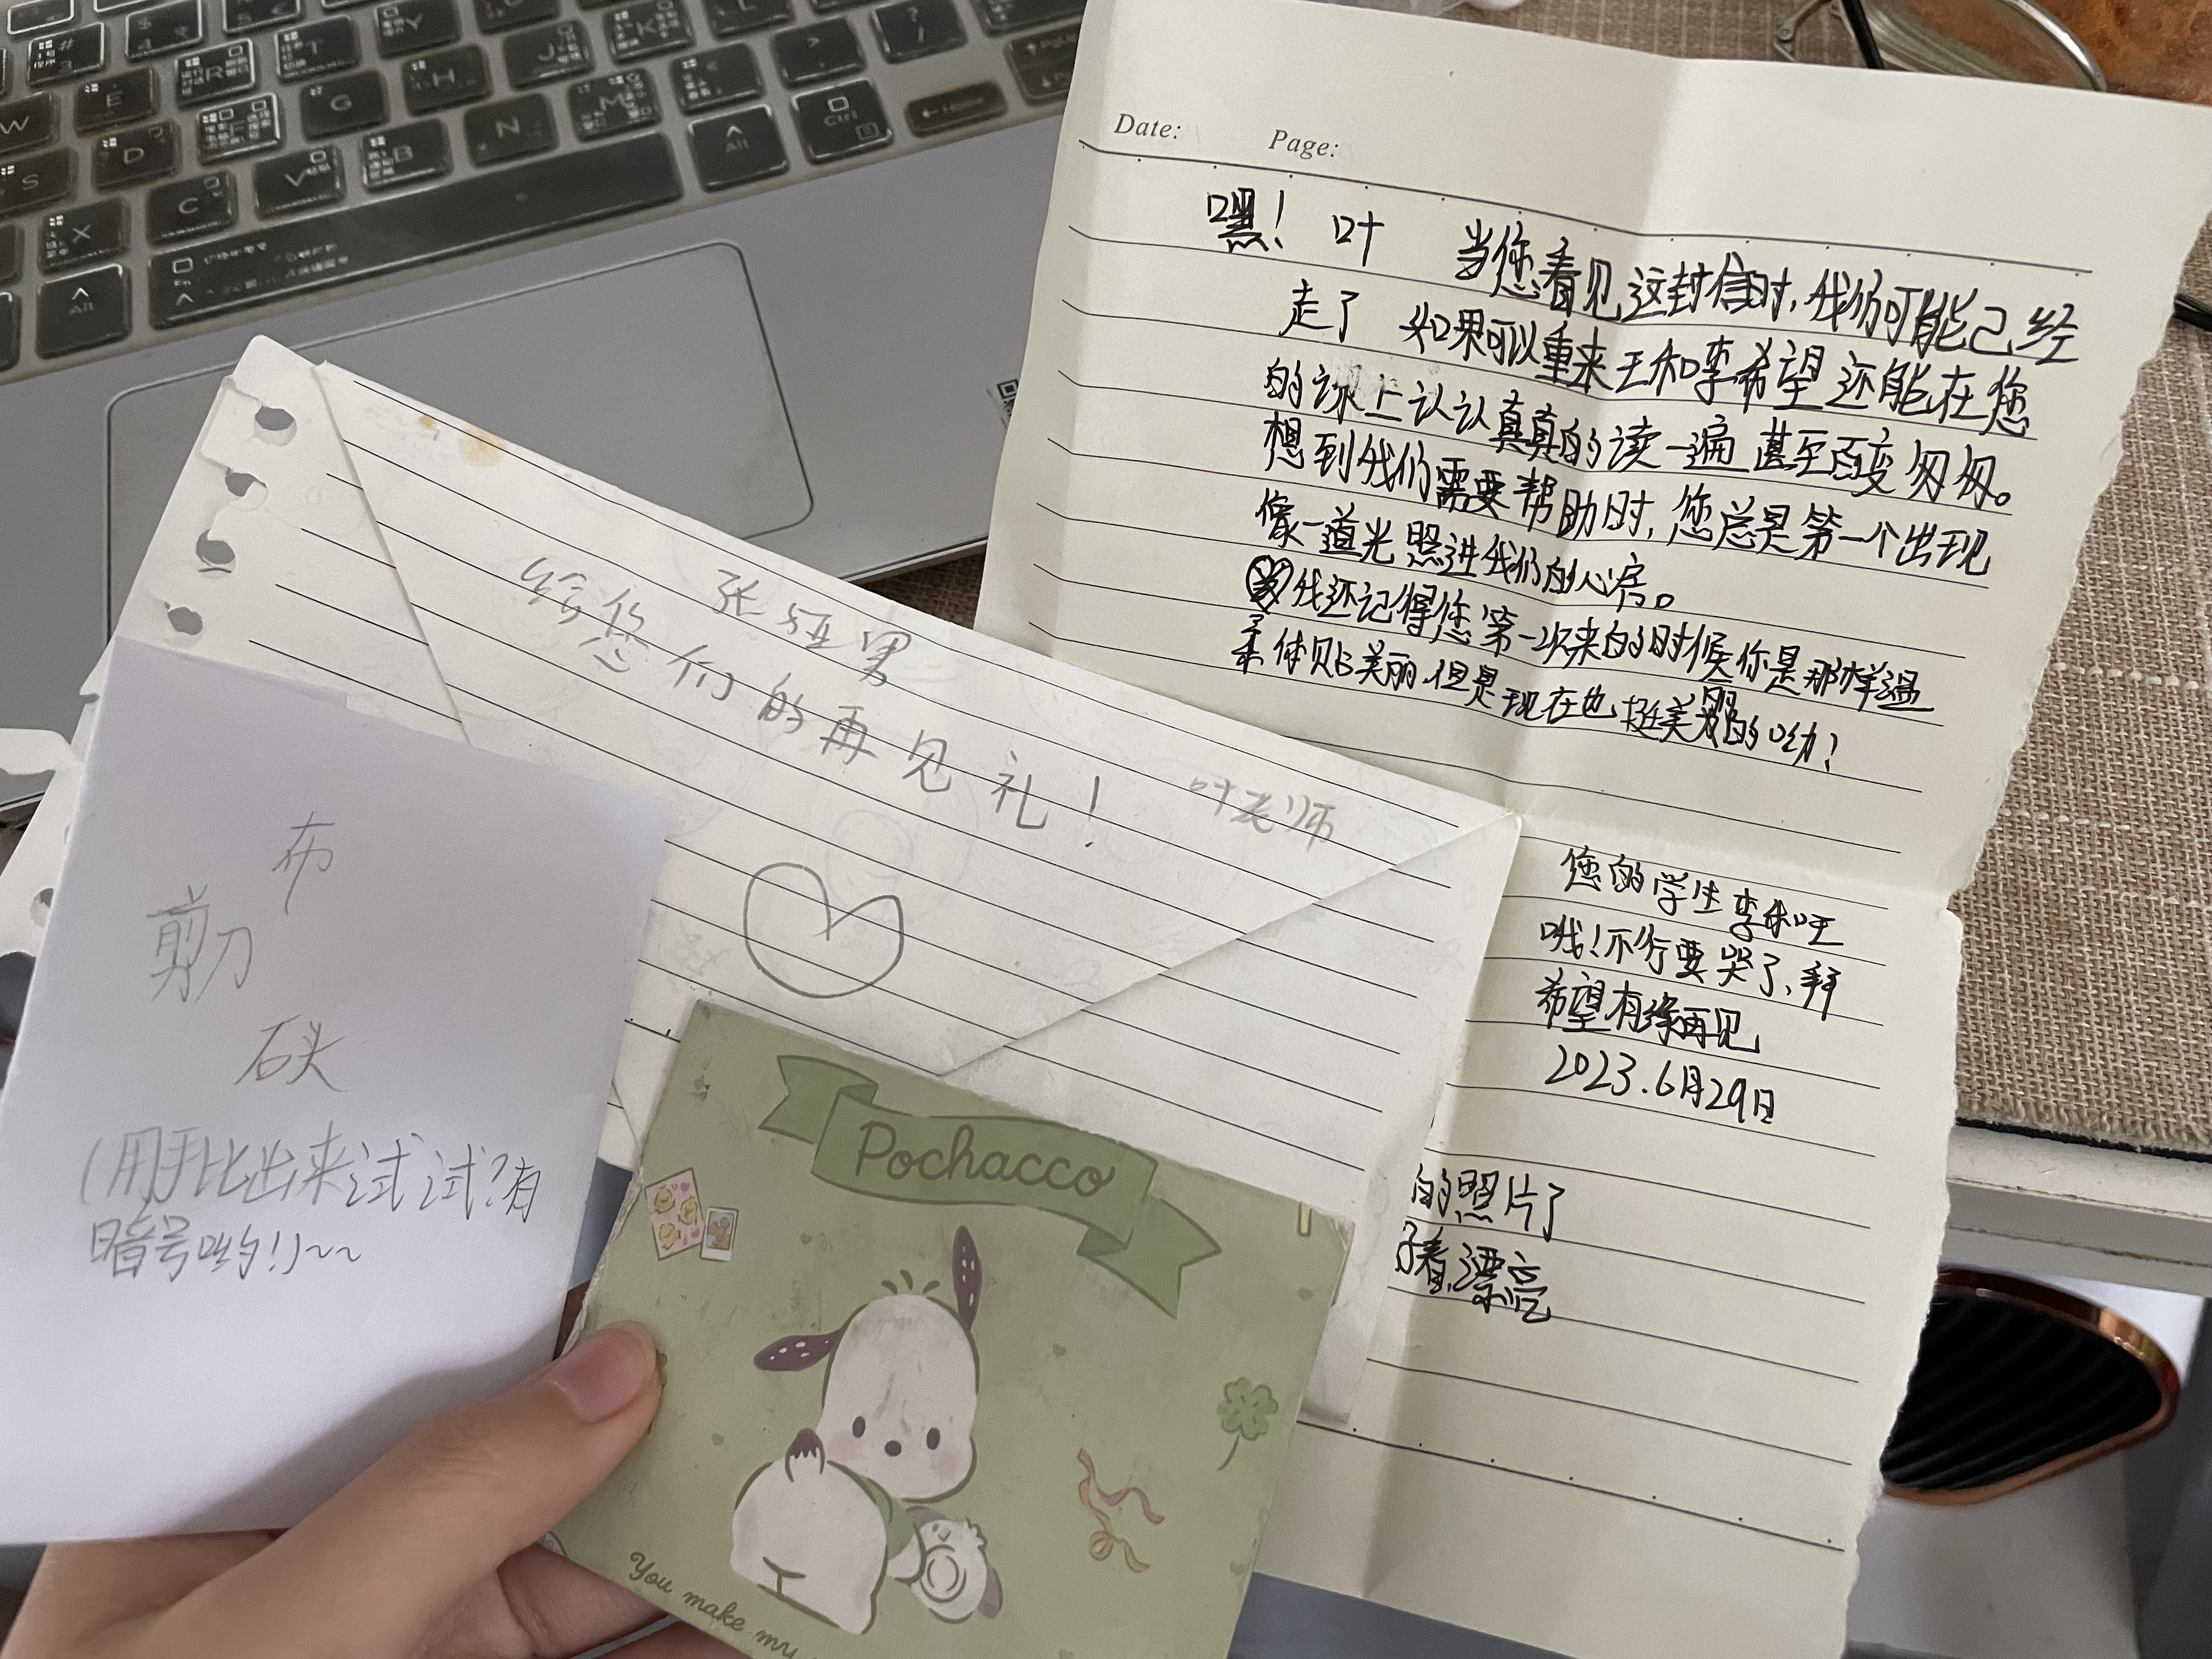 Date: Page:
嘿！ 叶 当您看见这封信时，我们可能己经
走了 如果可以重来王和李希望还能在您
的课上认认真真的读一遍 甚至百变匆匆。
想到我们需要帮助时，您总是第一个出现
像一道光照进我们的心房。
我还记得您第一次来的时候你是那样温
柔体贴美丽，但是现在也挺美丽的呦！
您的学生李和王
哦！不行要哭了、拜
希望有缘再见
2023.6月29日
的照片了
看，漂亮
给您们的再见礼！
叶老师
布
剪刀
石头
（用手比出来试试？有
暗号哟！）~~
Pochacco
You make my
W E R T Y
S D F G H J K
X C V B N M
Alt Alt Ctrl Home